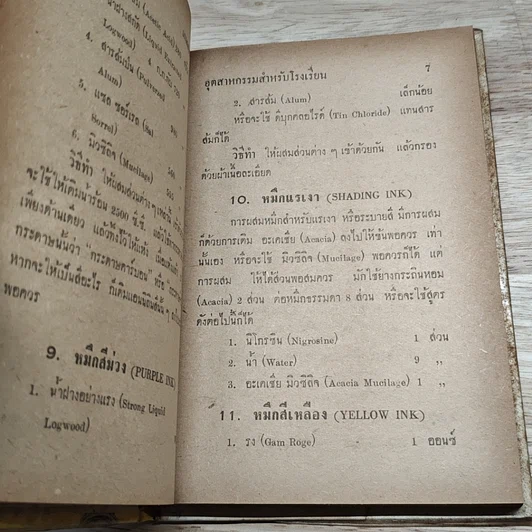 (Acetic Acid)
น้ำฝางสกัด (Liquid
Logwood)
4. สารส้มป่น (Pulverized
Alum)
5. แซล ซอร์เรล (Sal
Sorrel)
6. มิวซิลิจ (Mucilage)
วิธีทำ ให้ผสมส่วนต่างๆ เหล่านี้
จะใช้ให้เติมน้ำร้อน 2500 ซี.ซี.
เพียงด้านเดียว แล้วทิ้งไว้ให้แห้ง
กระดาษนั้นว่า "กระดาษคารบอน" หรือ
หากจะให้เป็นสีอะไร ก็เติมแอนิลีนสีนั้น ๆ
พอควร
9. หมึกสีม่วง (PURPLE INK)
1. น้ำฝางอย่างแรง (Strong Liquid
Logwood)
อุตสาหกรรมสำหรับโรงเรียน 7
2. สารส้ม (Alum) เล็กน้อย
หรือจะใช้ ดีบุกคลอไรด์ (Tin Chloride) แทนสาร
ส้มก็ได้
วิธีทำ ให้ผสมส่วนต่าง ๆ เข้าด้วยกัน แล้วกรอง
ด้วยผ้าเนื้อละเอียด
10. หมึกแรเงา (SHADING INK)
การผสมหมึกสำหรับแรเงา หรือระบายสี มีการผสม
ก็ด้วยการเติม อะเคเซีย (Acacia) ลงไปให้ข้นพอควร เท่า
นั้นเอง หรือจะใช้ มิวซิลิจ (Mucilage) พอควรก็ได้ แต่
การผสม ให้ได้ส่วนพอสมควร มักใช้ยางกระถินหอม
(Acacia) 2 ส่วน ต่อหมึกธรรมดา 8 ส่วน หรือจะใช้สูตร
ดังต่อไปนี้ก็ได้
1. นิโกรซีน (Nigrosine) 1 ส่วน
2. น้ำ (Water) 9 ,,
3. อะเคเซีย มิวซิลิจ (Acacia Mucilage) 1 ,,
11. หมึกสีเหลือง (YELLOW INK)
1. รง (Gam Roge) 1 ออนซ์